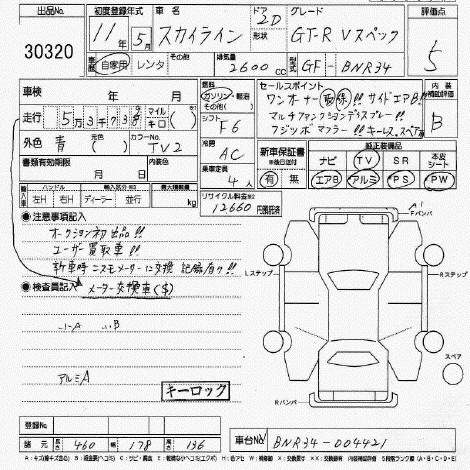 出品No. 初度登録年式 車名 ドア 2D グレード 評価点
30320 11年 5月 スカイライン 形状 GT-R Vスペック 5
車歴 自家用 レンタ その他 排気量 2600cc 型式 GF-BNR34
車検 年 月 燃料 ガソリン・軽油 その他( ) セールスポイント 内装補助評価
走行 5万3千7 マイル キロ ワンオーナー(取保)!!サイドエアB!! B
シフト F6 マルチファンクションディスプレー!!
外色 青 元色( ) カラーNo. TV2 フジツボマフラー!!キーレス、スペア有
書類有効期限 月 日 内装色 冷房 AC 新車保証書 ※後日送付 有 無 純正装備品
乗車定員 4人 ナビ TV SR 本皮シート
輸入車 ハンドル 左H 右H 輸入区分 ※3 ディーラー 並行 最大積載量 kg エアB アルミ PS PW
リサイクル料金※2 12660円預託済
●注意事項記入
オークション初出品!!
ユーザー買取車!!
新車時ニスモメーターに交換 記録有り!!
●検査員記入 メーター交換車($)
小A 小B
アルミA
キーロック
A1 Fバンパ
Lステップ Rステップ
スペア
Rバンパ
登録No
諸元 長さ 460 幅 178 高さ 136 車台No BNR34-004421